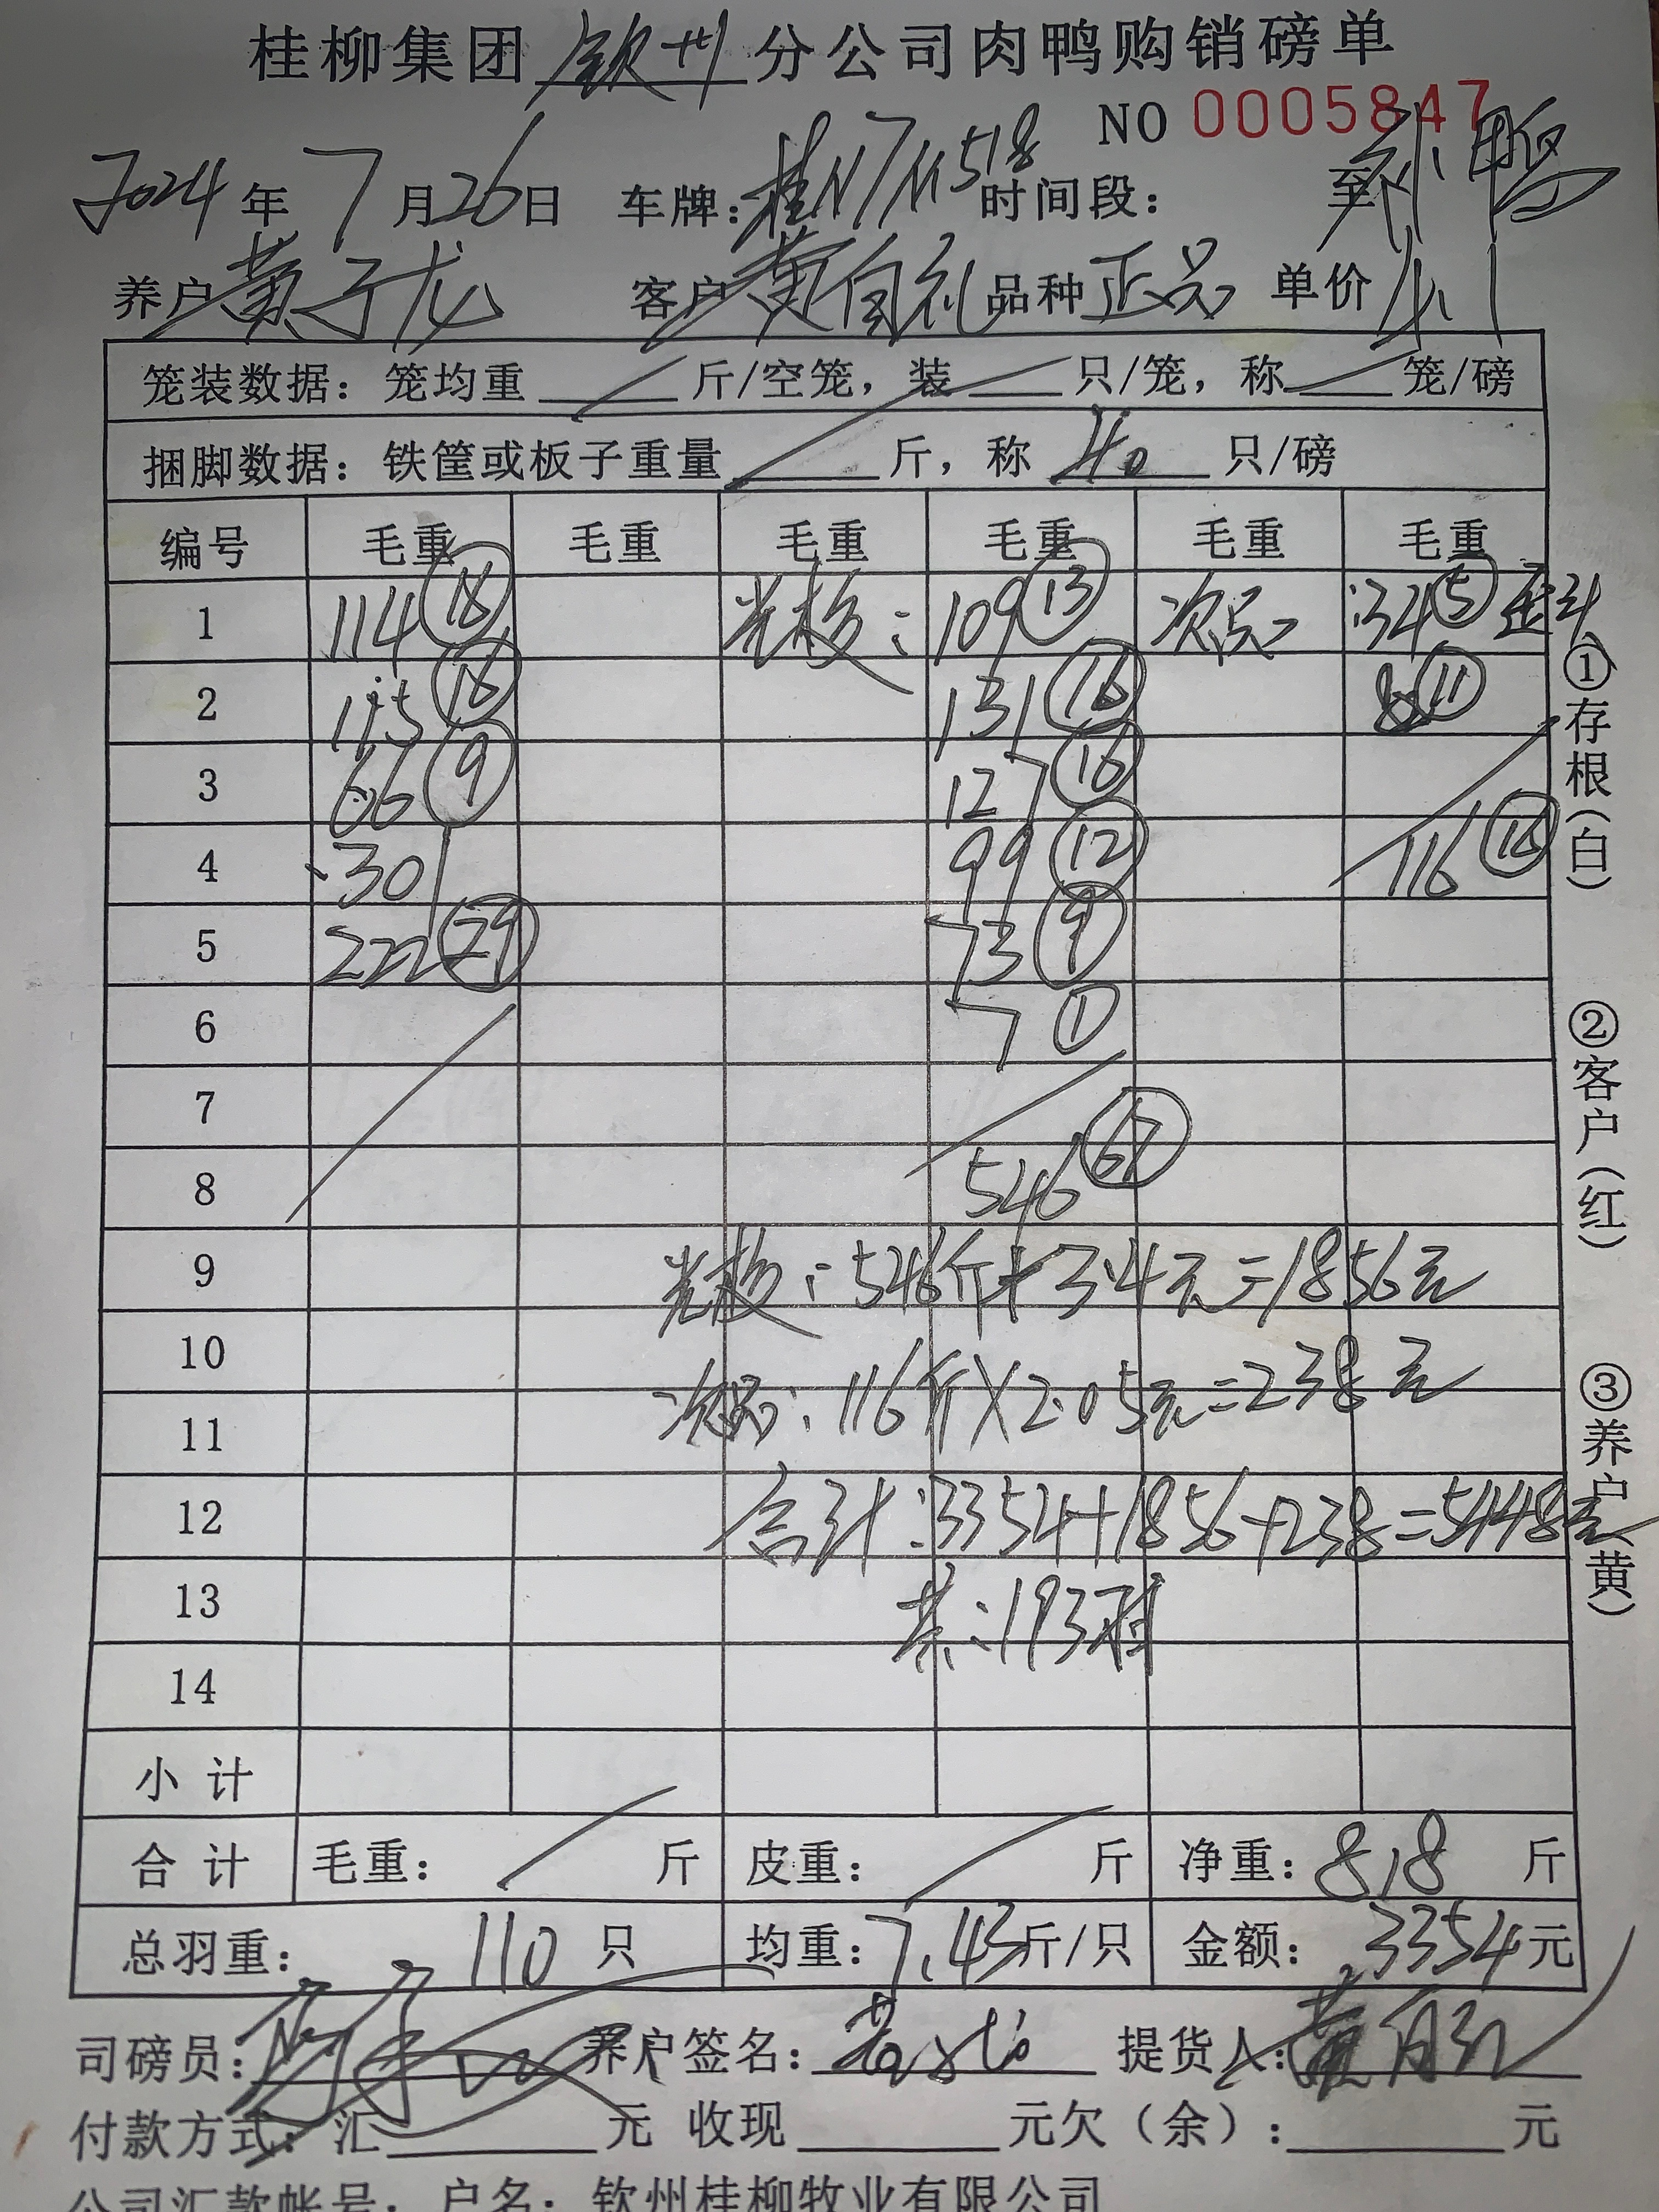 桂柳集团 钦州 分公司肉鸭购销磅单
NO 0005847
2024 年 7 月 26 日 车牌: 时间段: 至
养户 黄子龙 客户 黄自礼 品种 正品 单价 4.1
笼装数据: 笼均重 斤/空笼, 装 只/笼, 称 笼/磅
捆脚数据: 铁筐或板子重量 斤, 称 40 只/磅
编号 毛重 毛重 毛重 毛重 毛重 毛重
1 114 : 109 13 次品 :34 5
2 16 131 16 11
3 66 9 127 16
4 30 99 12 116 16
5 222 29 73 9
6 7 1
7
8 546 67
9 : 546斤×3.4元=1856元
10
次品: 116斤×2.05元=238元
11
12 合计:3354+1856+238=5448元
13 共:193只
14
小计
合计 毛重: 斤 皮重: 斤 净重: 818 斤
总羽重: 110 只 均重: 7.43 斤/只 金额: 3354 元
司磅员: 养户签名: 提货人:
付款方式: 汇 元 收现 元欠(余): 元
公司汇款帐号: 户名: 钦州桂柳牧业有限公司
①存根(白)
②客户(红)
③养户(黄)